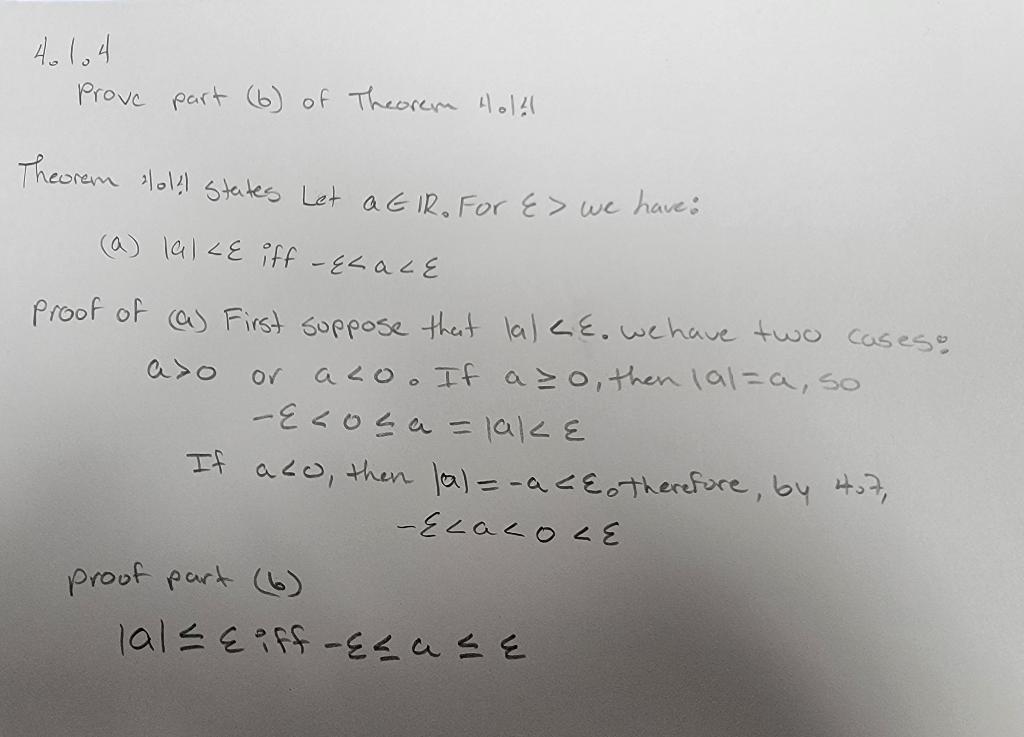 4.1.4
Prove part (b) of Theorem 4.1.4
Theorem 4.1.4 states Let a ∈ IR. For ε > we have:
(a) |a| < ε iff -ε < a < ε
Proof of (a) First suppose that |a| < ε. we have two cases:
a > 0 or a < 0. If a ≥ 0, then |a| = a, so
-ε < 0 ≤ a = |a| < ε
If a < 0, then |a| = -a < ε. therefore, by 4.7,
-ε < a < 0 < ε
proof part (b)
|a| ≤ ε iff -ε ≤ a ≤ ε